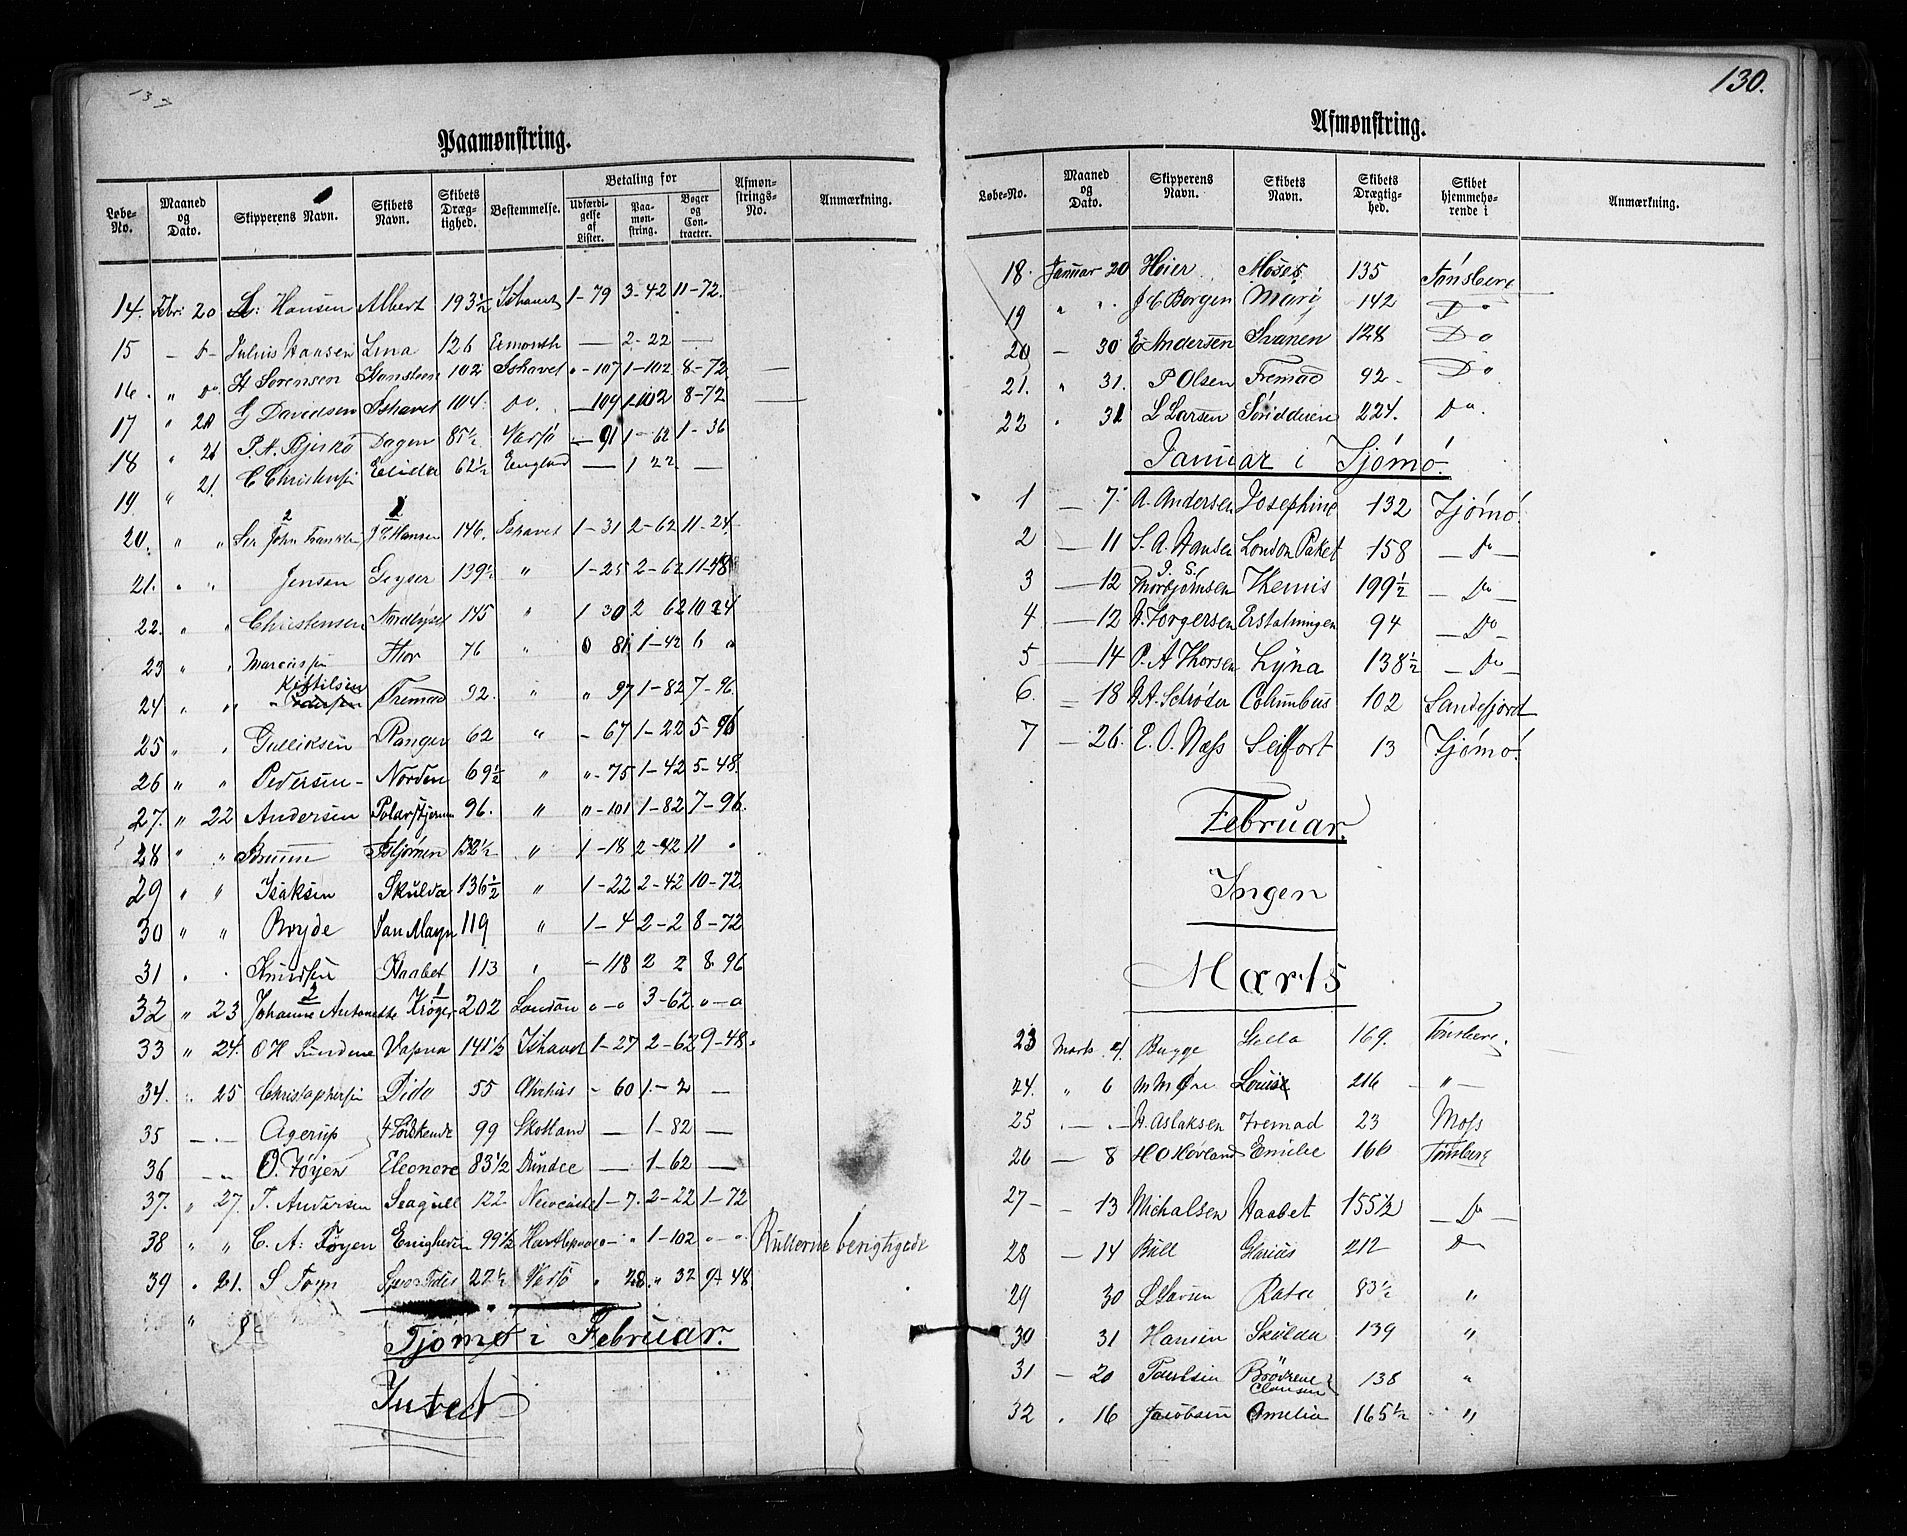 130.
Paamønstring.
Løbe-No. Maaned og Dato. Skipperens Navn. Skibets Navn. Skibets Dræg-tighed. Bestemmelse. Betaling for Udfærdi-gelse af Lister. Paa-møn-string. Bøger og Con-tracter. Afmøn-strings-No. Anmærkning.
14. Febr: 20 Hansen Albert 193½ Ishavet 1-79 3-42 11-72.
15 Julius Hansen Lina 126 — 2-22 —
16. " do. H Sørensen 102 Ishavet "-107 1-102 8-72 —
17 " 20 G Davidsen Ishavet 104. do. —109 1-102 8-72 —
18 " 21 P. A. Bjerkø Dagen 85½ —91 1-62 1-36
19 " 21. C Christensen Elida 62½ England — 1 22 —
20. " " Ser John Franklin J C Hansen 146. Ishavet 1-31 2-62 11-24.
21. " " Jensen Geyser 139½ " 1-25 2-62 11-48
22. " " Christensen Nordlyset 145 " 1 30 2 62 10 24
23 " " Marcussen Thor 76 " 0 81 1-42 6 "
24 " " Kittilsen Fremad 92. " " 97 1-82 7-96.
25 " " Gulliksen Ranger 62 " - 67 1-22 5-96
26 " " Pedersen- Norden 69½ " "-75 1-42 5-48.
27. " 22 Andersen Polarstjernen 96. " "-101 1-82 7-96.
28 " " Bruun Isbjørnen 132½ " 1-18 2-42 11 "
29 " " Isaksen Skulda 136½ " 1-22 2-42 10-72
30 " " Bryde Jan Mayn 119 " 1-4 2-2 8-72
31 " " Knudsen Haabet 113 " -118 2 2 8-96
32 " 23 Johanne Antonette Krøger 202 London "-" 3-62 "-"
33 " 24. O H Sundene Vapna 141½ Ishavet 1-27 2-62 9-48.
34. " 25 Christophersen Dido 55 - 60 1-2 —
35 — " — Agerup 4 Sødskende 99 Skotland — 1-82 —
36 — " O. Føyen Eleonore 83½ Dundee — 1-62 —
37. " 27. T. Andersen Seagull 122 Newcastle 1-7. 2-22 1-72
38 " " C. A: Føyen Enigheden 99½ Hartlepool "- " 1-102 "- " Rullerne berigtigede
39 " 21. S Foyn Spes & Fides 22½ " 28. " 32 9-48
Tjømø i Februar.
Intet
Afmønstring.
Løbe-No. Maaned og Dato. Skipperens Navn. Skibets Navn. Skibets Drægtig-hed. Skibet hjemmehø-rende i Anmærkning.
18. Januar 20 Høier Moses 135 Tønsberg
19 " " J C Borgen Mary 142 Do
20 — 30 E Andersen Svanen 128 Do
21. " 31. P Olsen Fremad 92 - Do
22 " 31 L Larsen 224. Do.
Januar i Tjømø.
1 — 7. A. Andersen Josephine 132 Tjømø.
2 — 11 S. A. Hansen London Paket 158 — Do —
3 — 12 Thorbjørnsen Themis 199½ — Do —
4 — 12 A. Torgersen Erstatningen 94 — Do —
5 — 14 P. A Thorsen Lyna 138½ — Do —
6. — 18 A. A. Schrøder Columbus 102 Sandefjord
7 — 26. E. O. Næss Seiffort 13 Tjømø.
Februar.
Ingen
Marts
23 Marts 4. Bugge Stella 169. Tønsberg.
24. " 6 M M Øre Louise 216 — " —
25 . — . — A Aslaksen Fremad 23 Moss
26 — 8 H O Hovland Emilie 166 Tønsberg
27 — — 13 Michalsen Haabet 155½ — Do —
28 — 14 Bull Glarius 212 Do
29 30 L Larsen Rota 83½ "
30 31 Hansen Skulda 139 "
31 — 20 Brødrene Clausen 138 "
32 . 16 Jacobsen Amelia 165½ "